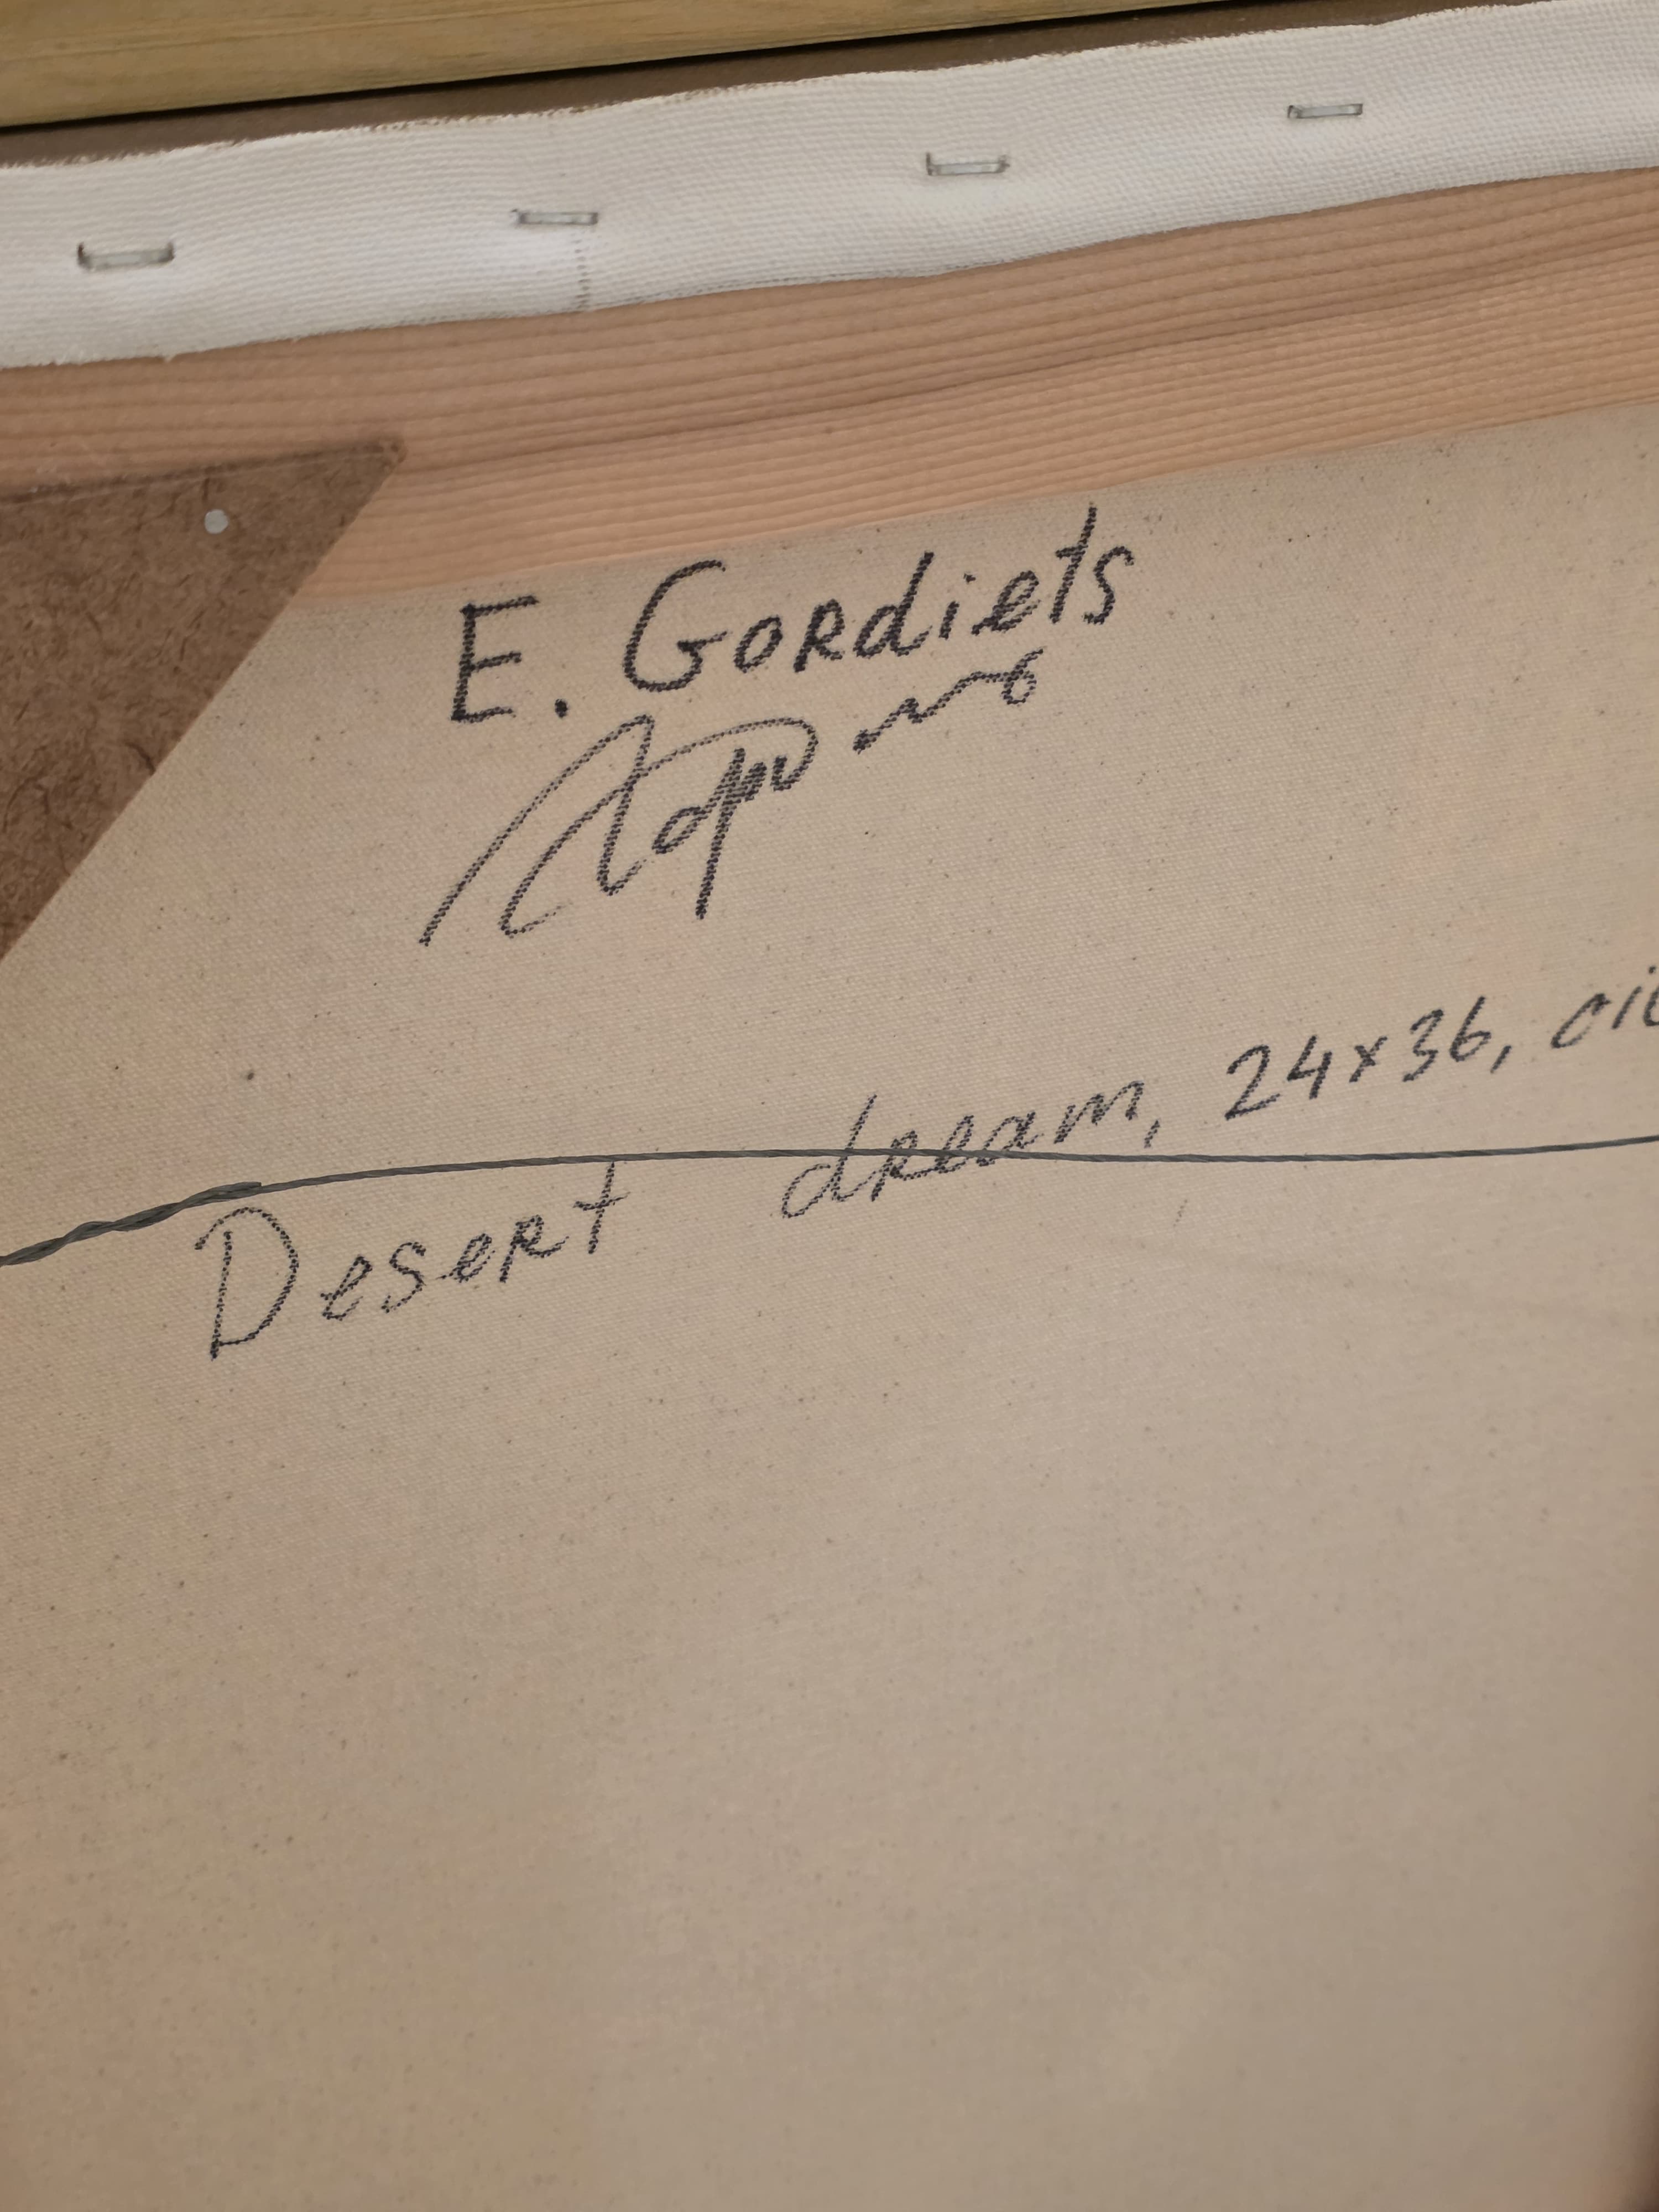 E. Gordiets
Desert dream, 24x36, oil